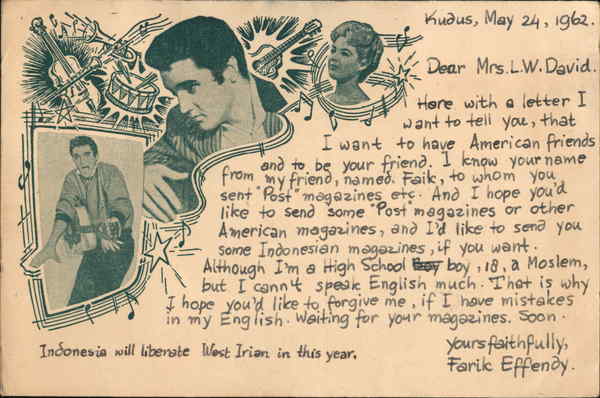 Kudus, May 24, 1962.
Dear Mrs. L.W. David.
Here with a letter I
want to tell you, that
I want to have American friends
and to be your friend. I know your name
from my friend, named. Faik, to whom you
sent "Post" magazines etc. And I hope you'd
like to send some "Post magazines or other
American magazines, and I'd like to send you
some Indonesian magazines, if you want.
Although I'm a High School boy, 18, a Moslem,
but I cann't speak English much. That is why
I hope you'd like to forgive me, if I have mistakes
in my English. Waiting for your magazines. Soon.
yours faithfully,
Farik Effendy.
Indonesia will liberate West Irian in this year.